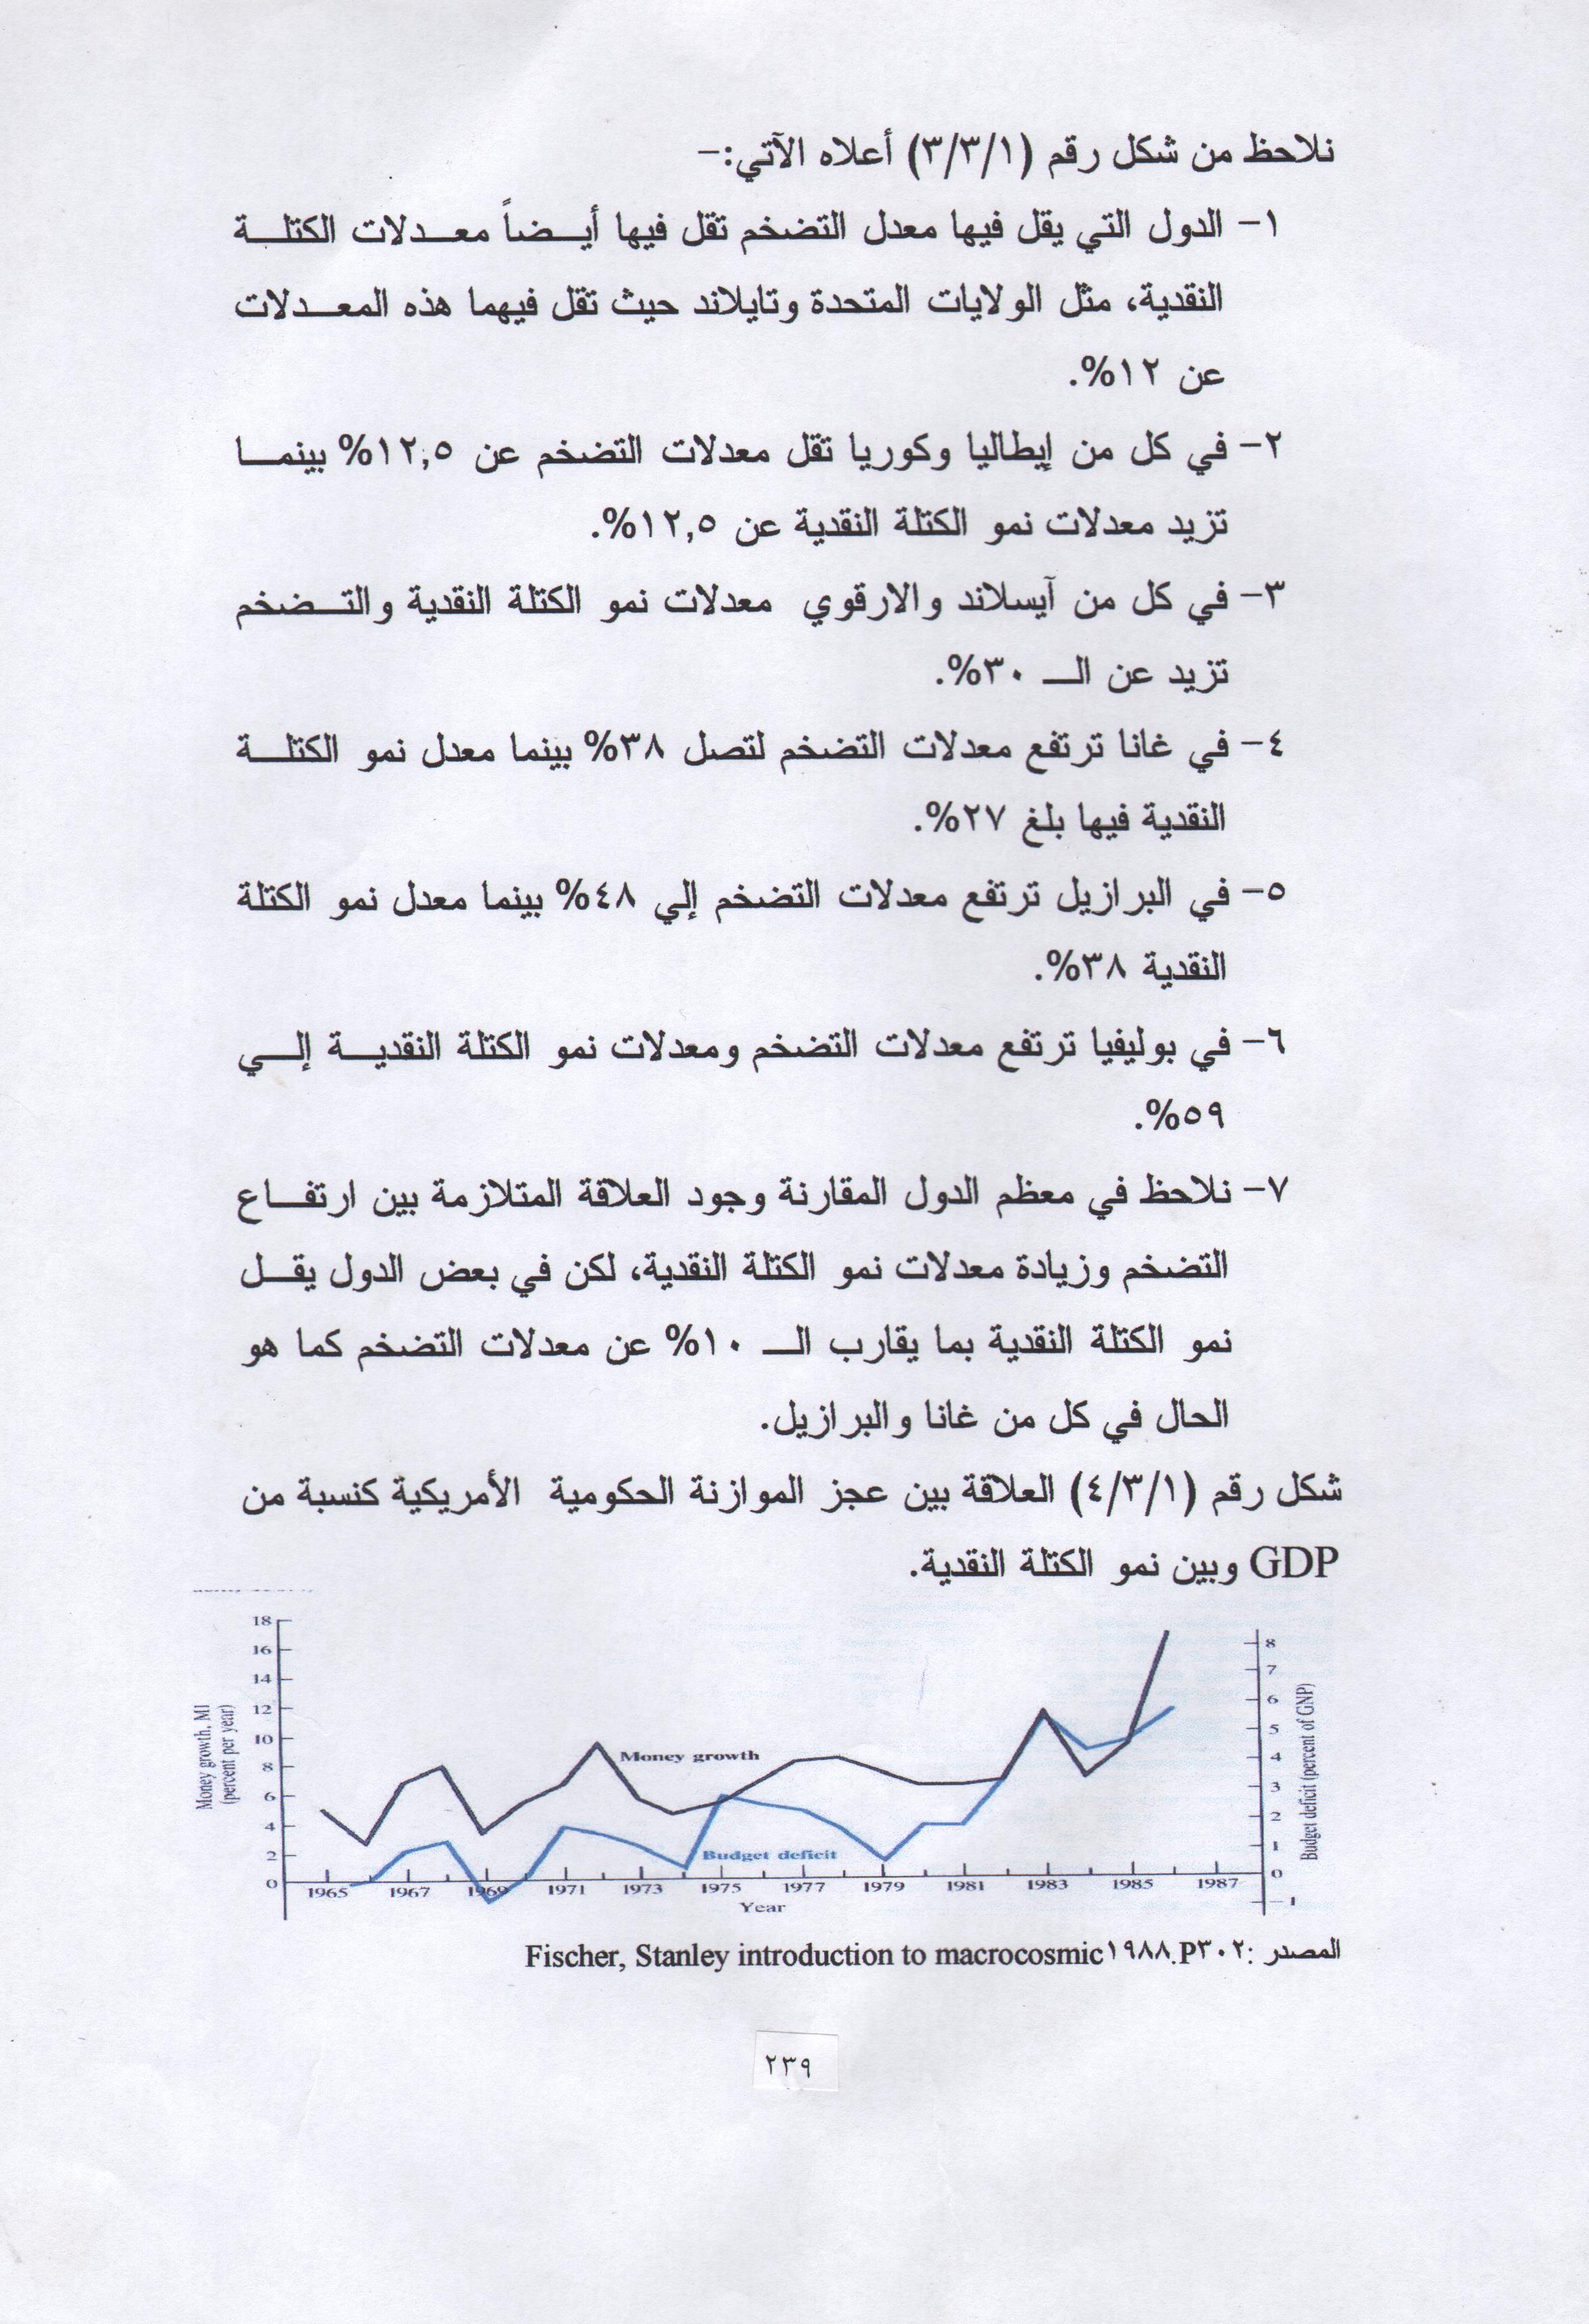 نلاحظ من شكل رقم (٣/٣/١) أعلاه الآتي:-
١- الدول التي يقل فيها معدل التضخم تقل فيها أيضاً معدلات الكتلة
النقدية، مثل الولايات المتحدة وتايلاند حيث تقل فيهما هذه المعدلات
عن ١٢%.
٢- في كل من إيطاليا وكوريا تقل معدلات التضخم عن ١٢,٥% بينما
تزيد معدلات نمو الكتلة النقدية عن ١٢,٥%.
٣- في كل من آيسلاند والارقوي معدلات نمو الكتلة النقدية والتضخم
تزيد عن الـ ٣٠%.
٤- في غانا ترتفع معدلات التضخم لتصل ٣٨% بينما معدل نمو الكتلة
النقدية فيها بلغ ٢٧%.
٥- في البرازيل ترتفع معدلات التضخم إلي ٤٨% بينما معدل نمو الكتلة
النقدية ٣٨%.
٦- في بوليفيا ترتفع معدلات التضخم ومعدلات نمو الكتلة النقدية إلي
٥٩%.
٧- نلاحظ في معظم الدول المقارنة وجود العلاقة المتلازمة بين ارتفاع
التضخم وزيادة معدلات نمو الكتلة النقدية، لكن في بعض الدول يقل
نمو الكتلة النقدية بما يقارب الـ ١٠% عن معدلات التضخم كما هو
الحال في كل من غانا والبرازيل.
شكل رقم (٤/٣/١) العلاقة بين عجز الموازنة الحكومية الأمريكية كنسبة من
GDP وبين نمو الكتلة النقدية.
Money growth, M1
(percent per year)
18
16
14
12
10
8
6
4
2
0
Money growth
Budget deficit
8
7
6
5
4
3
2
1
0
-1
Budget deficit (percent of GNP)
1965 1967 1969 1971 1973 1975 1977 1979 1981 1983 1985 1987
Year
المصدر :Fischer, Stanley introduction to macrocosmic١٩٨٨.P٣٠٢
٢٣٩